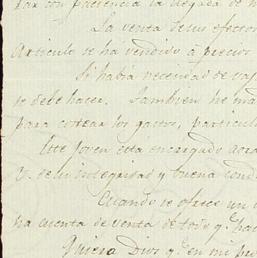 zar con paciencia la llegada de
La venta de sus efectos
Articulo se ha vendido á precios
Si habia necesidad de
se debe hacer. Tambien he
para costear los gastos, particul
Este joven está encargado
V. de su integridad y buena cond
Cuando se ofrece un
na cuenta de venta de todo y hac
Quiera Dios q.e en mi